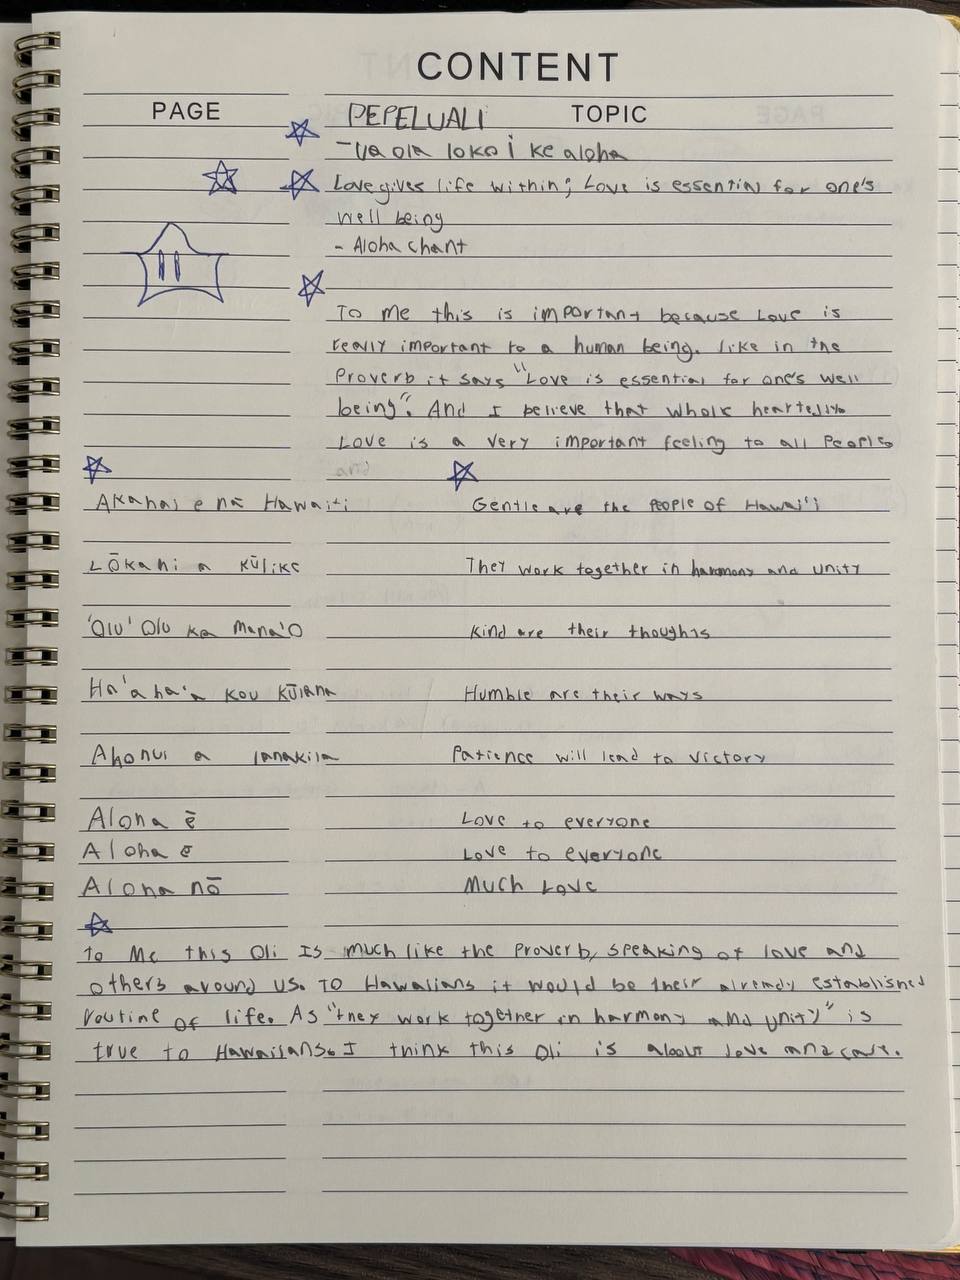 CONTENT
PAGE PEPELUALI TOPIC
- ua ola loko i ke aloha
Love gives life within; Love is essential for one's
well being
- Aloha chant
To me this is important because Love is
really important to a human being. like in the
Proverb it says "Love is essential for one's well
being". And I believe that whole heartedly
Love is a very important feeling to all People
Akahai e nā Hawai'i Gentle are the people of Hawai'i
Lōkahi a kūlike They work together in harmony and unity
'Olu'Olu ka Mana'o kind are their thoughts
Ha'aha'a kou kūlana Humble are their ways
Ahonui a lanakila Patience will lead to victory
Aloha ē Love to everyone
Aloha ē Love to everyone
Aloha nō Much Love
To Me this Oli Is much like the Proverb, speaking of love and
others around us. To Hawaiians it would be their already established
routine of life. As "they work together in harmony and unity" is
true to Hawaiians. I think this Oli is about love and care.